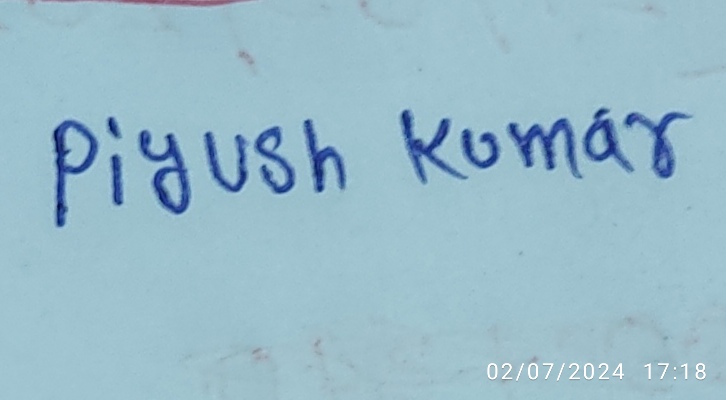 Piyush Kumar
02/07/2024 17:18